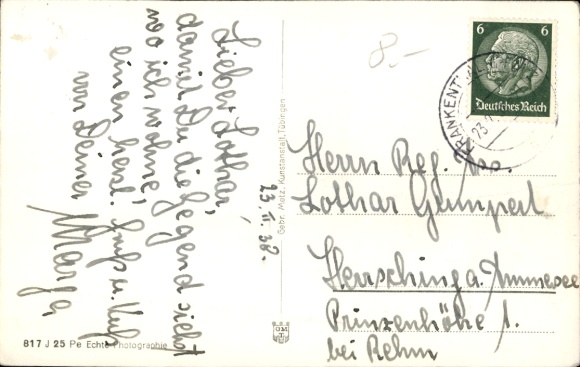 Lieber Lothar,
damit Du die Gegend siehst
wo ich wohne,
einen herzl. Gruß u. Kuß
von Deiner
Marga
23. II. 38.
Gebr. Metz, Kunstanstalt, Tübingen
817 J 25 Pe Echte Photographie
8.-
6 6
Deutsches Reich
FRANKENT
23.
Herrn Reg.
Lothar Gumpert
Herrsching a. Ammersee
Prinzenhöhe 1.
bei Rehm